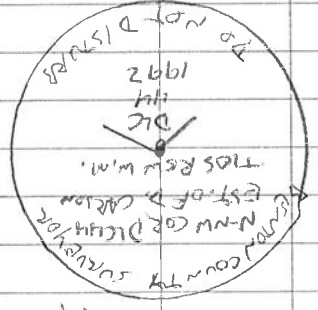 BENTON COUNTY SURVEYOR
N-NW COR DLC 44
EST. OF D. CARSON
T10S R5W W.M.
DLC
44
1992
DO NOT DISTURB